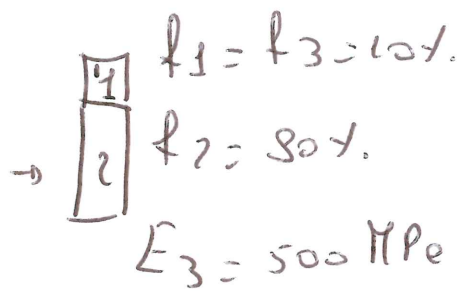 f1 = f3 = 10%.
1
f2 = 80%.
→ 2
E3 = 500 MPa